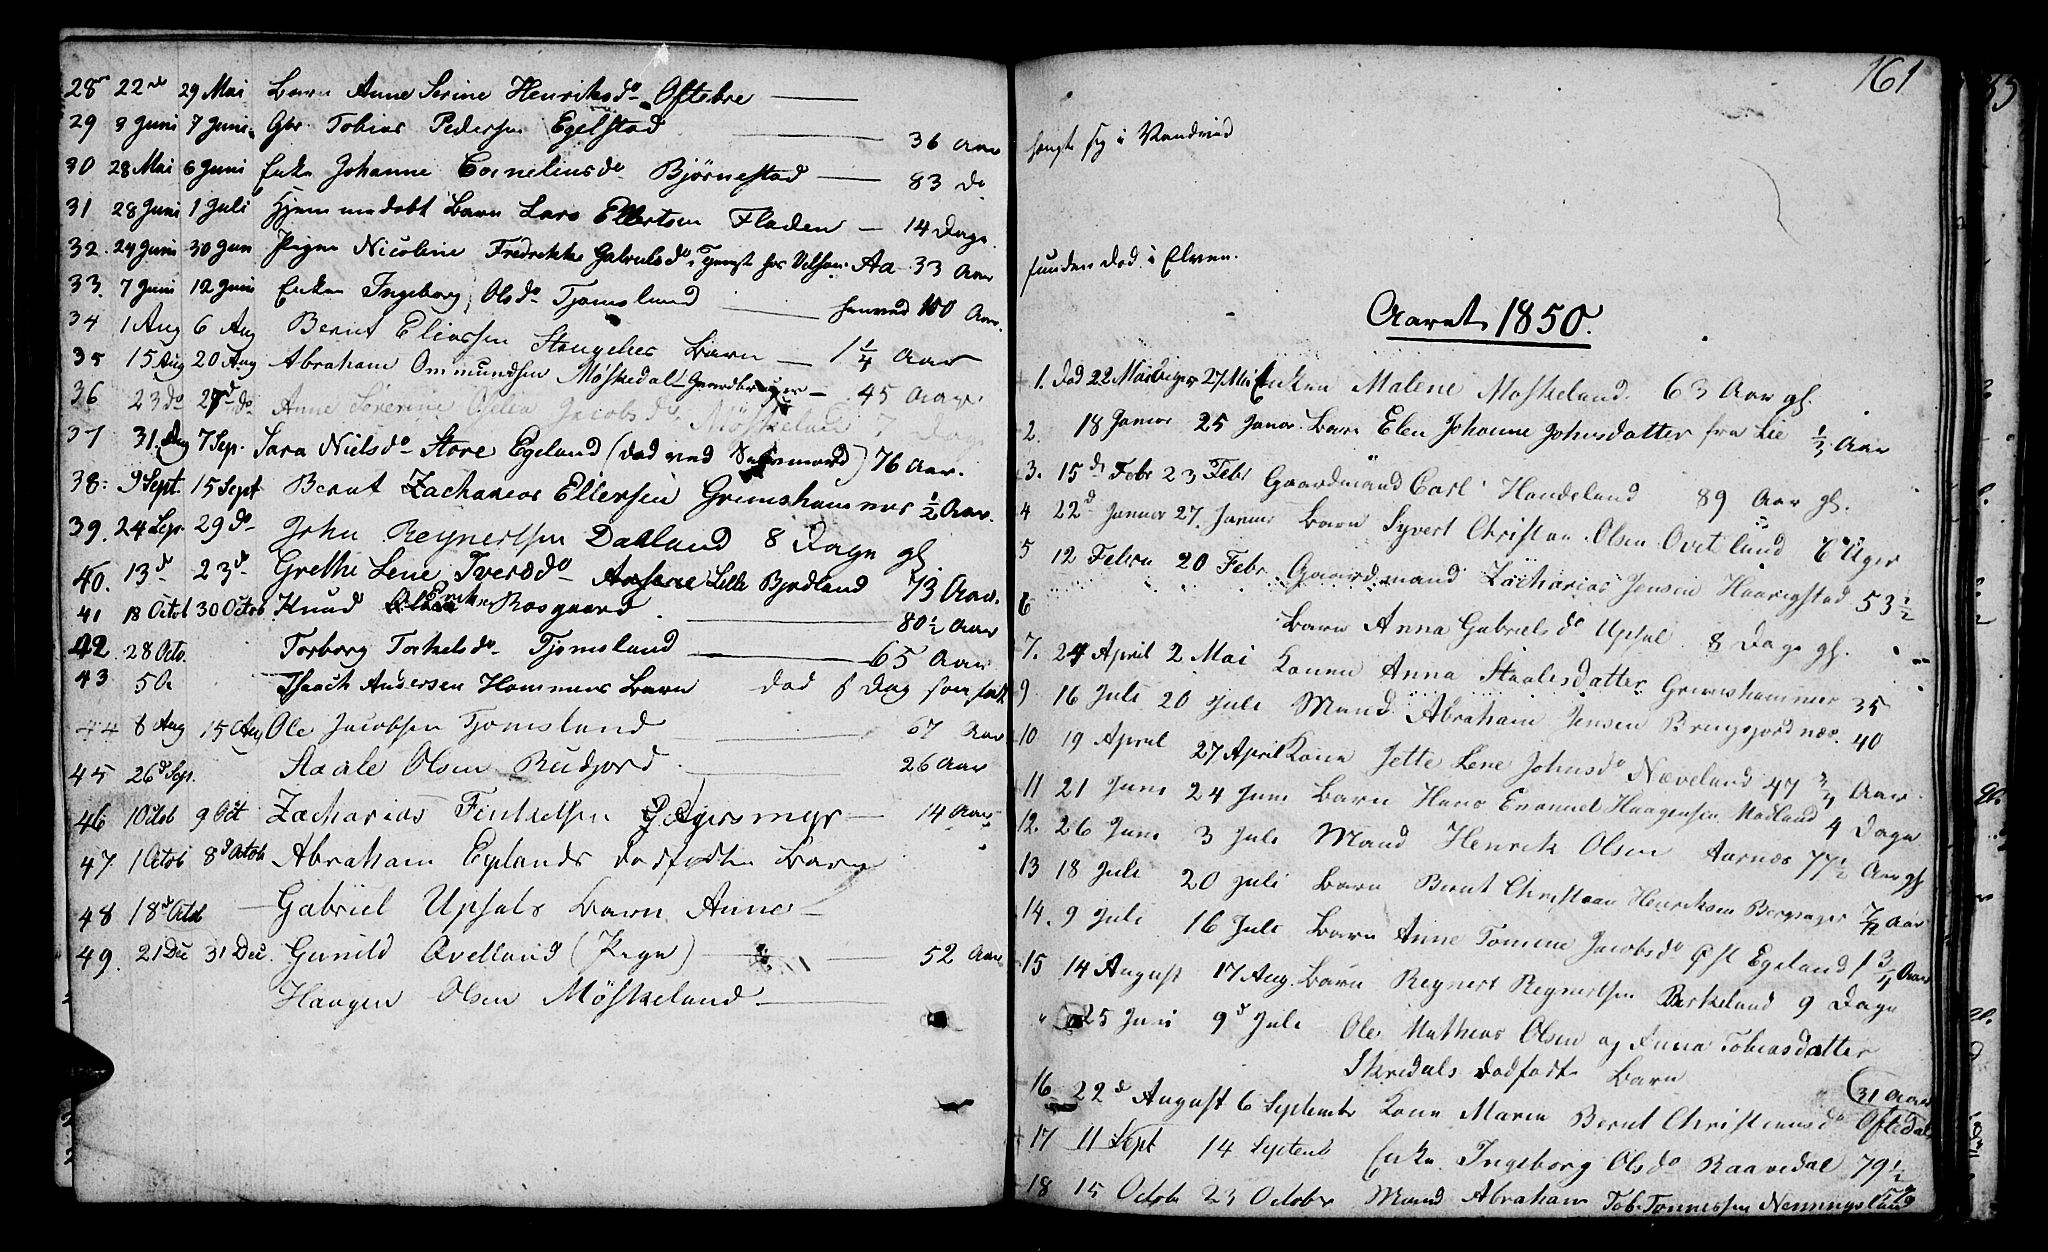 28 22de 29 Mai Barn Anne Serine Henriksdr Oftebre
29 3 Juni 7 Juni Gbr. Tobias Pedersen Egelstad 36 Aar
30 28 Mai 6 Juni Enke Johanne Cornelius dr Bjørnestad 83 do
31 28 Juni 1 Juli Hjemmedøbt Barn Lars Ellertsen Fladen 14 Dage
32. 24 Juni 30 Jun Pigen Nicoline Fredrikke Gabrielsdr Aa 33 Aar
33. 7 Juni 12 Juni Enken Ingeborg Olsdr Tjomsland henved 100 Aar.
34 1 Aug 6 Aug Bernt Eliassen Stongeles Barn 1 1/4 Aar
35 15 Aug 20 Aug Abraham Ommundsen Møskedal Gaardbruger 45 Aar
36 23 do 27 do Anne Severine Jacobsdr Møskeland 7 Dage
37 31 Aug 7 Sep. Sara Nielsdr Store Egeland (død ved Selvmord) 76 Aar.
38. 9 Sept. 15 Sept Bernt Zacharias Ellersen Grimshammer 1/2 Aar.
39. 24 Sep. 29 do John Reynertsen Datland 8 Dage gl.
40. 13d 23d Grethe Lene Lille Bjødland 73 Aar.
41 18 Octob 30 Octob Knud Rosgaard 80 1/2 Aar
42. 28 Octo. Torborg Torkelsdr Tjomsland 65 Aar
43 Isaach Andersen Hommens Barn død
44 8 Aug 15 Aug Ole Jacobsen Tjomsland 67 Aar
45 26d Sep. Staale Olsen Rudjord 26 Aar
46 1 Octob 9 Oct Zacharias Fintselsen 14 Aar
47 1 Octob 8d Octob Abraham Egelands dødfødte Barn
48 18de Octob Gabriel Upsals Barn Anne
49. 21 Dec 31 Dec. Gunild Ovetland (Pige) 52 Aar
Haagen Olsen Møskeland
161
hængte sig i Vandvind
funden død i Elven.
Aaret 1850.
1. død 22 Mai 27 Mai Enken Malene Moskeland. 63 Aar gl.
2. 18 Januar 25 Januar Barn Elen Johanne Johnsdatter fra Lie 1/3 Aar
3. 15de Febr 23 Febr Gaardmand Carl Handeland 89 Aar gl.
4 22d Januar 27. Januar Barn Syvert Christian Olsen Ovetland 6 Uger
5 12 Febru 20 Febr. Gaardmand Zacharias Jensen Haarigstad 53 1/2
6 Barn Anna Gabrielsdr Upsal 8 Dage gl.
7. 24 April 2 Mai Konen Anna Staalesdatter Grimshammer 35
9 16 Juli 20 Juli Mand Abraham Jensen Bringsjordnæs. 40
10 19 April 27 April Kone Jette Lene Johnsdr Næveland 47 3/4 Aar.
11 21 Juni 24 Juni Barn Hans Emanuel Haagensen Modland 4 Dage
12. 26 Juni 3 Juli Mand Henrik Olsen Aarnæs 77 1/2 Aar gl
13 18 Juli 20 Juli Barn Bernt Christian Henriksen Bergsager Aar
14. 9 Juli 16 Juli Barn Anne Tomine Jacobsdr Øst Egeland 1 3/4 Aar
15 14 August 17 Aug. Barn Reynert Reynertsen Birkeland 9 Dage
" 25 Juni 9d Juli Ole Mathias Olsen og Anna Tobiasdatter
Skredals dødfødte Barn
16 22d August 6 Septembr Kone Maren Bernt Christensdr Oftedal (31 Aar
17 11 Sept 14 Septemb Enke Ingeborg Olsdr Raavedal 79 1/2
18 15 Octob 23 October Mand Abraham Tob. Tønnessen Nenningsland